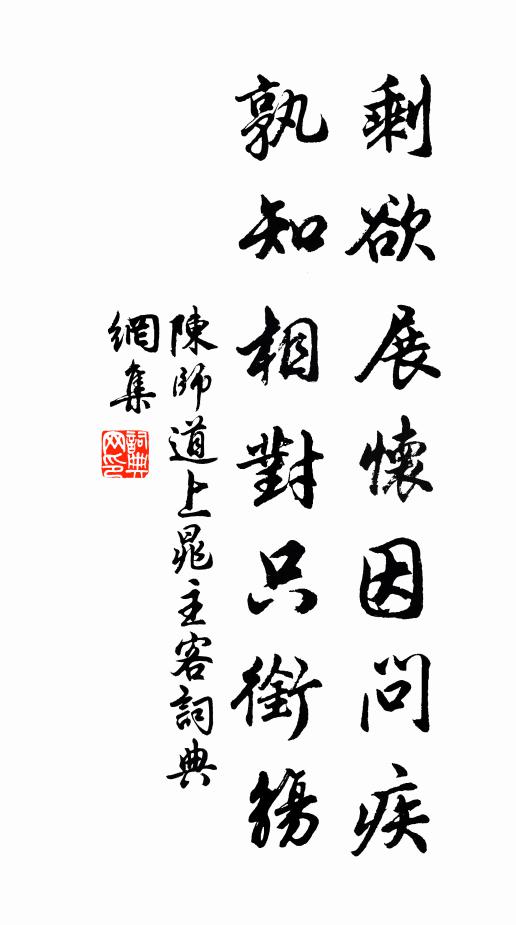 剩欲展懷因問疾
孰知相對只銜觴
陳師道上晁主客詞典
網集
詞典
网印